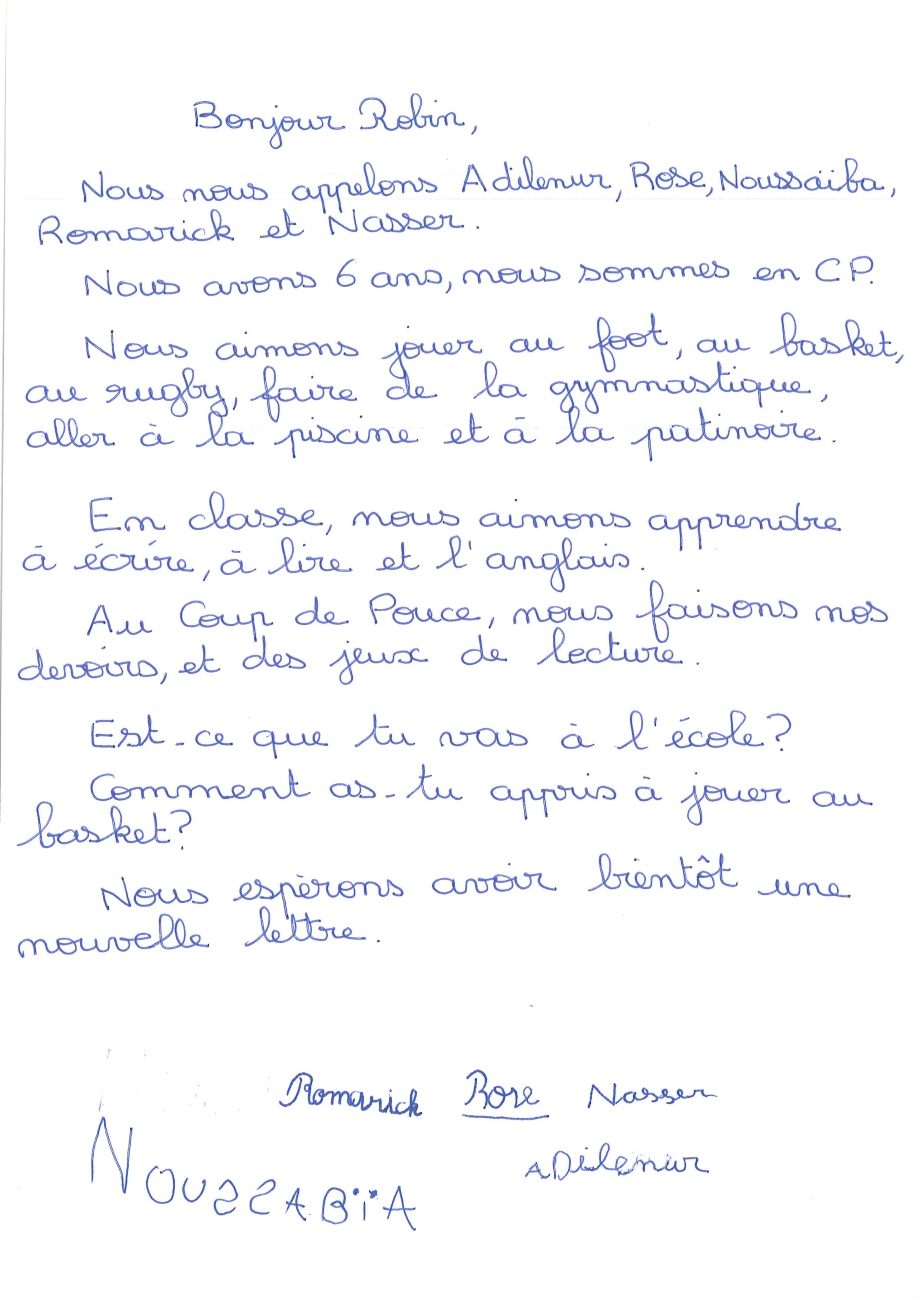 Bonjour Robin,
Nous nous appelons Adilenur, Rose, Noussaïba,
Romarick et Nasser.
Nous avons 6 ans, nous sommes en CP.
Nous aimons jouer au foot, au basket,
au rugby, faire de la gymnastique,
aller à la piscine et à la patinoire.
En classe, nous aimons apprendre
à écrire, à lire et l'anglais.
Au Coup de Pouce, nous faisons nos
devoirs, et des jeux de lecture.
Est-ce que tu vas à l'école?
Comment as-tu appris à jouer au
basket?
Nous espérons avoir bientôt une
nouvelle lettre.
Romarick Rose Nasser
ADilenur
NOUSSABïA